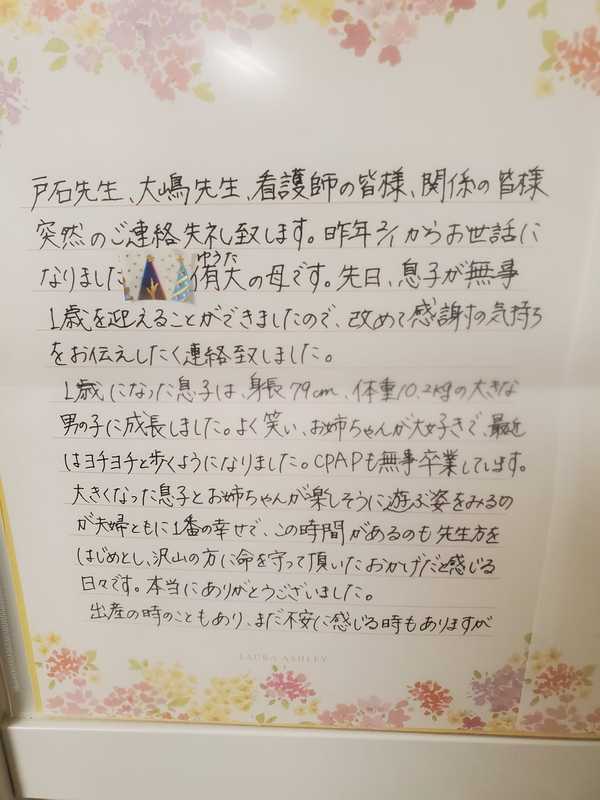 戸石先生、大嶋先生、看護師の皆様、関係の皆様
突然のご連絡失礼致します。昨年2/1からお世話に
なりました 侑大の母です。先日、息子が無事
ゆうた
1歳を迎えることができましたので、改めて感謝の気持ち
をお伝えしたく連絡致しました。
1歳になった息子は、身長79cm、体重10.2kgの大きな
男の子に成長しました。よく笑い、お姉ちゃんが大好きで、最近
はヨチヨチと歩くようになりました。CPAPも無事卒業しています。
大きくなった息子とお姉ちゃんが楽しそうに遊ぶ姿をみるの
が夫婦ともに1番の幸せで、この時間があるのも先生方を
はじめとし、沢山の方に命を守って頂いたおかげだと感じる
日々です。本当にありがとうございました。
出産の時のこともあり、まだ不安に感じる時もありますが
LAURA ASHLEY